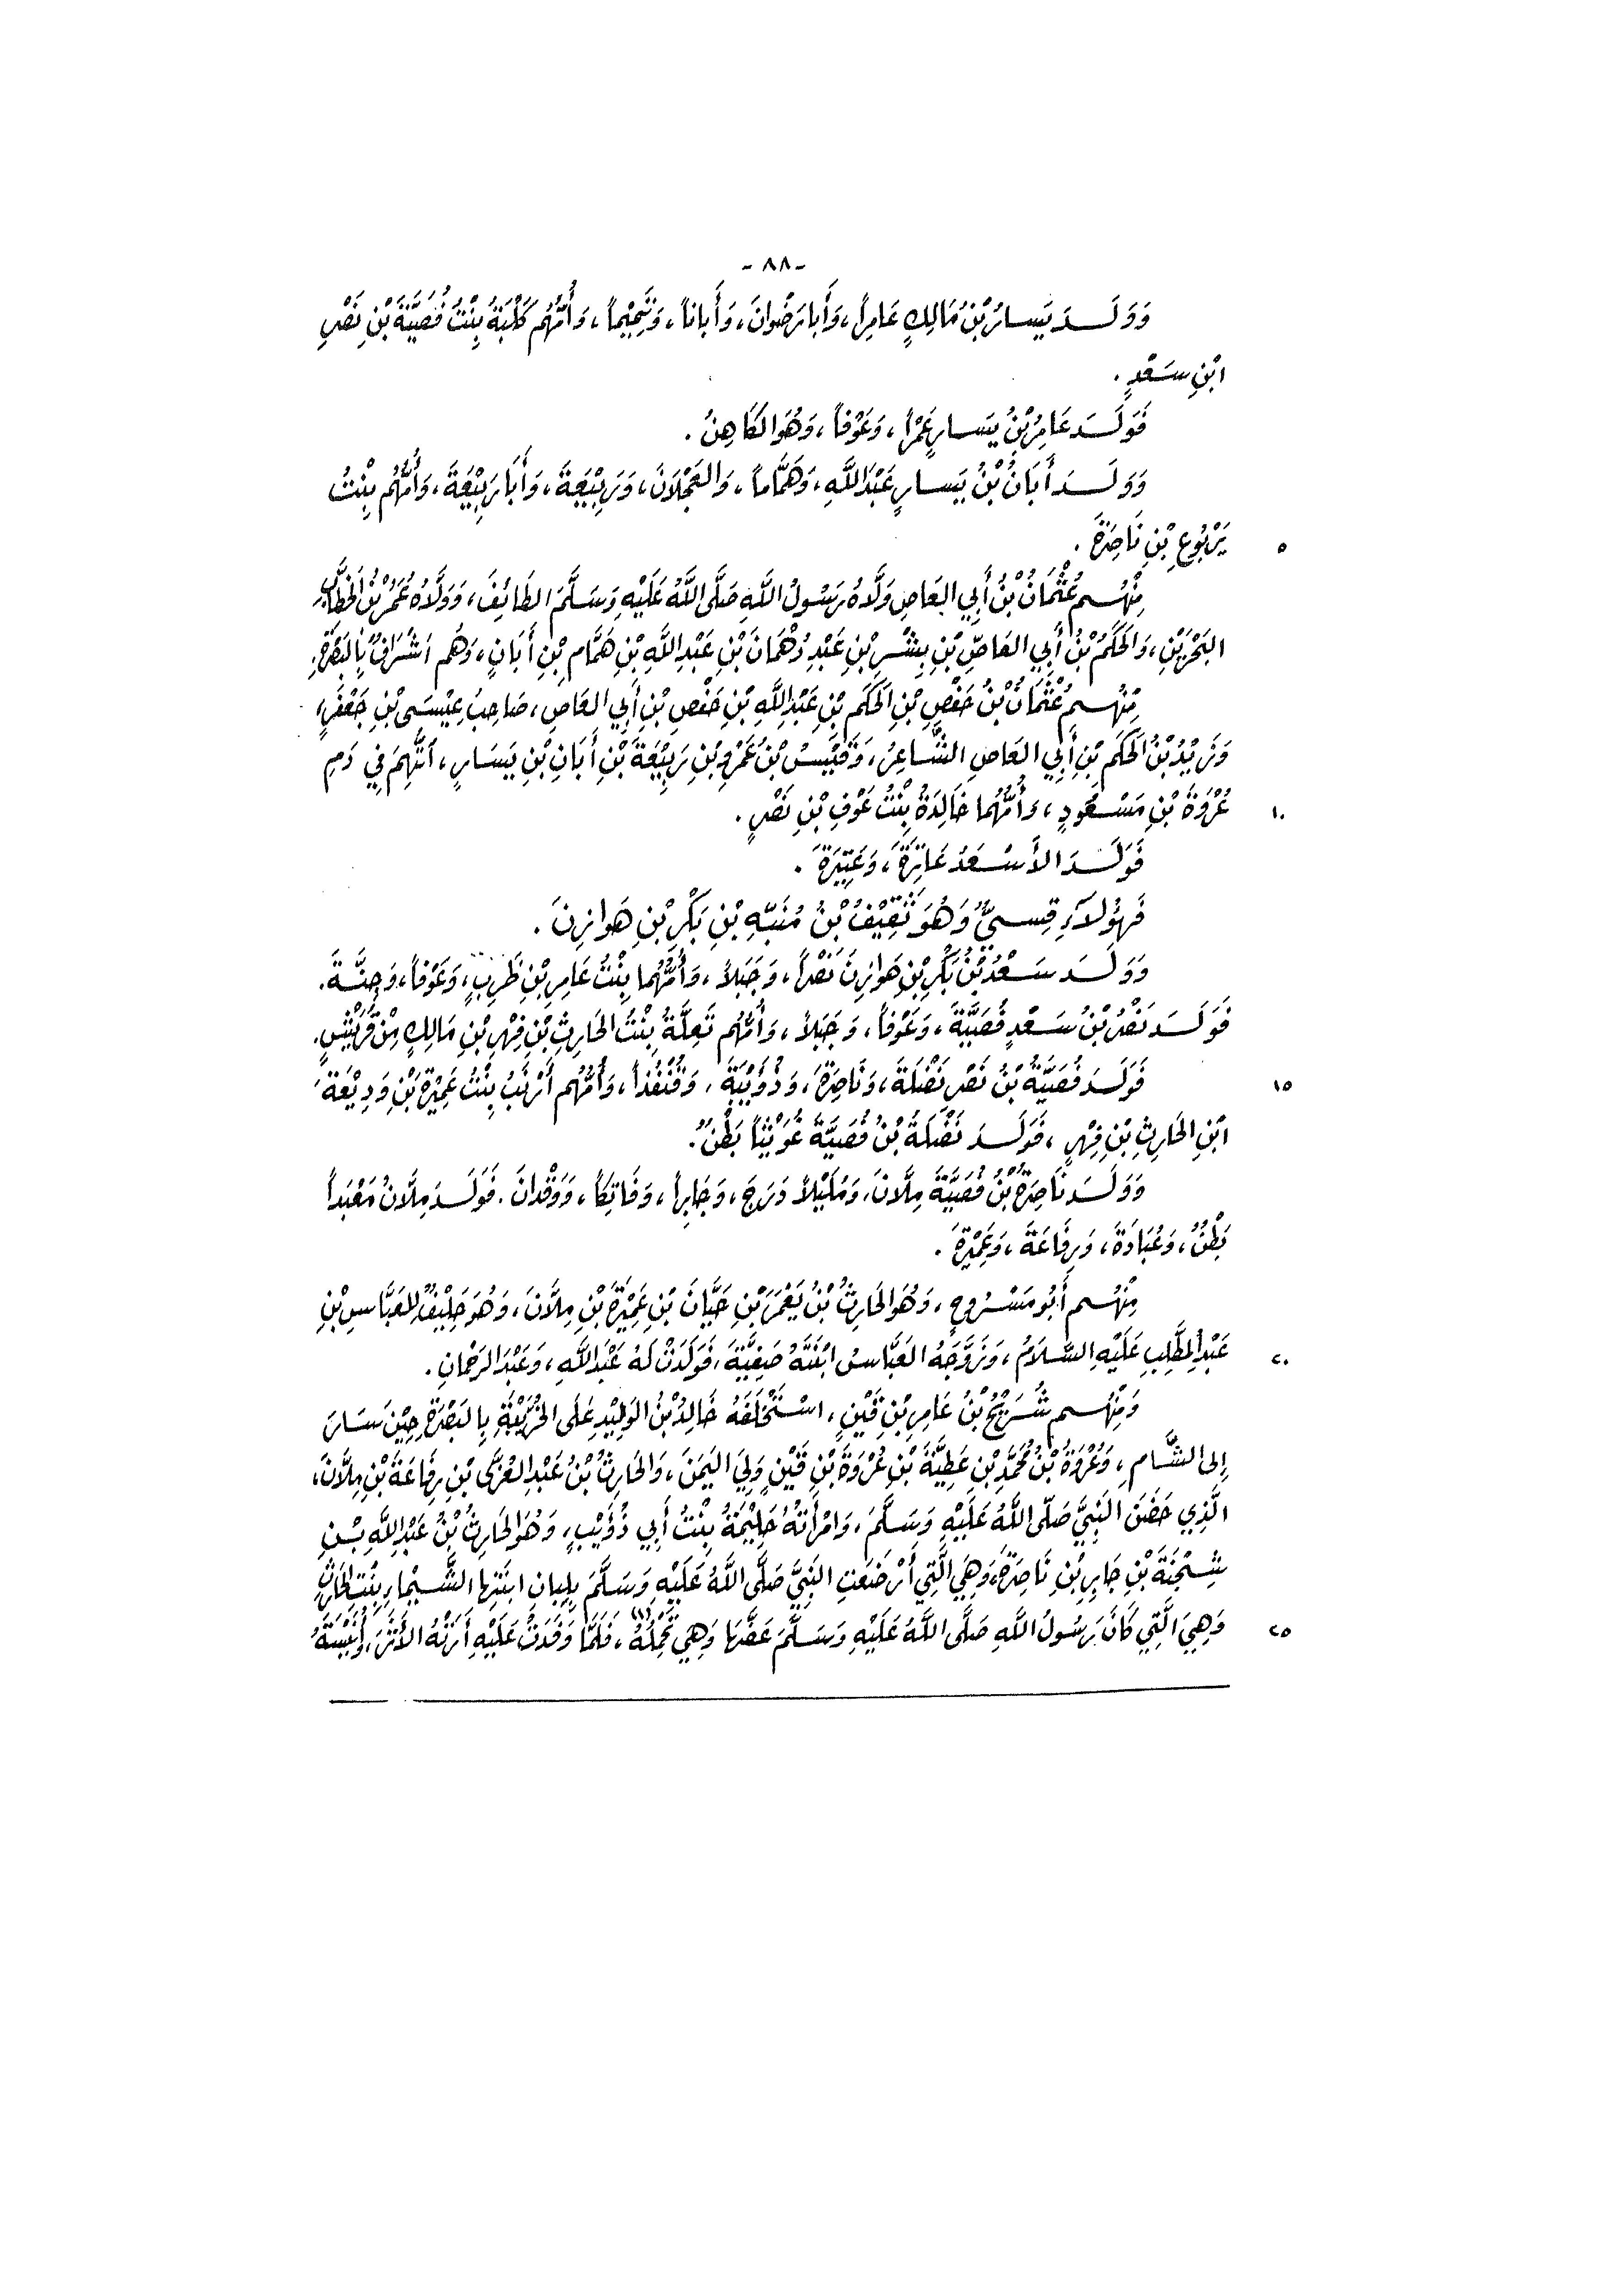 - ٨٨ -
وَوَلَـدَ يَسارُ بْنُ مَالِكٍ عَامِراً، وَأَبا رَضْوانَ، وَأَباناً، وَتَمِيْماً، وَأُمُّهُم كَلْبَةُ بِنْتُ فُصَيَّةَ بْنِ نَصْرِ
ابْنِ سَعْدٍ .
فَوَلَـدَ عَامِرُ بْنُ يَسارٍ عَمْراً، وَعَوْفاً، وَهُوَ الكَاهِنُ .
وَوَلَـدَ أَبَانُ بْنُ يَسارٍ عَبْدَ اللَّهِ، وَهَمَّاماً، وَالعَجْلَانَ، وَرَبِيْعَةَ، وَأَبَا رَبِيْعَةَ، وَأُمُّهُم بِنْتُ
٥ يَرْبُوعِ بْنِ نَاصِرَةَ .
مِنْهُـم عُثْمَانُ بْنُ أَبِي العَاصِ وَلَّاهُ رَسُولُ اللَّهِ صَلَّى اللَّهُ عَلَيْهِ وَسَلَّمَ الطَائِفَ، وَوَلَّاهُ عُمَرُ بْنُ الخَطَّابِ
البَحْرَيْنِ، وَالحَكَمُ بْنُ أَبِي العَاصِ بْنِ بِشْـرِ بْنِ عَبْدِ دُهْمَانَ بْنِ عَبْدِ اللَّهِ بْنِ هَمَّامِ بْنِ أَبَانٍ، وَهُم أَشْرَافٌ بِالبَصْرَةِ.
مِنْهُـم عُثْمَانُ بْنُ حَفْصِ بْنِ الحَكَمِ بْنِ عَبْدِ اللَّهِ بْنِ حَفْصِ بْنِ أَبِي العَاصِ، صَاحِبُ عِيْسَى بْنِ جَعْفَرٍ،
وَيَزِيْدُ بْنُ الحَكَمِ بْنِ أَبِي العَاصِ الشَّاعِرُ، وَقَيْسُ بْنُ عَمْرِو بْنِ رَبِيْعَةَ بْنِ أَبَانِ بْنِ يَسَارٍ، اتُّهِمَ فِي دَمِ
١٠ عُرْوَةَ بْنِ مَسْـعُودٍ، وَأُمُّهُما خَالِدَةُ بِنْتُ عَوْفِ بْنِ نَصْرٍ .
فَوَلَـدَ الأَسْـعَدُ عَاتِرَةَ، وَعَتِيْرَةَ .
فَهٰؤُلَاءِ قِسـيٌّ وَهُوَ ثَقِيْفُ بْنُ مُنَبِّهِ بْنِ بَكْرِ بْنِ هَوازِنَ .
وَوَلَـدَ سَـعْدُ بْنُ بَكْرِ بْنِ هَوازِنَ نَصْراً، وَجَبَلاً، وَأُمُّهُما بِنْتُ عَامِرِ بْنِ ظَرِبٍ، وَعَوْفاً، وَجِنَّـةَ .
فَوَلَـدَ نَصْرُ بْنُ سَـعْدٍ فُصَيَّةَ، وَعَوْفاً، وَجَبَلاً، وَأُمُّهُم تَعِلَّةُ بِنْتُ الحَارِثِ بْنِ فِهْرِ بْنِ مَالِكٍ مِنْ قُرَيْشٍ.
١٥ فَوَلَـدَ فُصَيَّةُ بْنُ نَصْرٍ نَضْلَةَ، وَنَاصِرَةَ، وَذُؤَيْبَةَ، وَقُنْفُذاً، وَأُمُّهُم أَرْنَبُ بِنْتُ عَمِيْرَةَ بْنِ وَدِيْعَةَ
ابْنِ الحَارِثِ بْنِ فِهْرٍ، فَوَلَـدَ نَضْلَةُ بْنُ فُصَيَّةَ غُوَيْثاً بَطْنٌ .
وَوَلَـدَ نَاصِرَةُ بْنُ فُصَيَّةَ مِلَّانَ، وَمُلَيْلاً دَرَجَ، وَجَابِراً، وَفَاتِكاً، وَوَقْدانَ . فَوَلَـدَ مِلَّانُ مَعْبَداً
بَطْنٌ، وَعُبَادَةَ، وَرِفَاعَةَ، وَعَمِيْرَةَ .
مِنْهُـم أَبُو مَسْـرُوحٍ، وَهُوَ الحَارِثُ بْنُ يَعْمَرَ بْنِ حَيَّانَ بْنِ عَمِيْرَةَ بْنِ مِلَّانَ، وَهُوَ حَلِيْفٌ لِلعَبَّاسِ بْنِ
٢٠ عَبْدِ المُطَّلِبِ عَلَيْهِ السَّـلَامُ، وَزَوَّجَهُ العَبَّاسُ ابْنَتَهُ صَفِيَّةَ، فَوَلَدَتْ لَهُ عَبْدَ اللَّهِ، وَعَبْدَ الرَحْمَانِ .
وَمِنْهُـم شُـرَيْحُ بْنُ عَامِرِ بْنِ قَيْنٍ، اسْـتَخْلَفَهُ خَالِدُ بْنُ الوَلِيْدِ عَلَى الخُرَيْبَةِ بِالبَصْرَةِ حِيْنَ سَـارَ
إِلى الشَّـامِ، وَعُرْوَةُ بْنُ مُحَمَّدِ بْنِ عَطِيَّةَ بْنِ عُرْوَةَ بْنِ قَيْنٍ وَلِيَ اليَمَنَ، وَالحَارِثُ بْنُ عَبْدِ العُزَّى بْنِ رِفَاعَةَ بْنِ مِلَّانَ،
الَّذِي حَضَنَ النَبِيَّ صَلَّى اللَّهُ عَلَيْهِ وَسَلَّمَ، وَامْرَأَتُهُ حَلِيْمَةُ بِنْتُ أَبِي ذُؤَيْبٍ، وَهُوَ الحَارِثُ بْنُ عَبْدِ اللَّهِ بْـنِ
شِـجْنَةَ بْنِ جَابِرِ بْنِ نَاصِرَةَ، وَهِيَ الَّتِي أَرْضَعَتِ النَبِيَّ صَلَّى اللَّهُ عَلَيْهِ وَسَلَّمَ بِلِبانِ ابْنَتِها الشَّـيْماءِ بِنْتِ الحَارِثِ
٢٥ وَهِيَ الَّتِي كَانَ رَسُولُ اللَّهِ صَلَّى اللَّهُ عَلَيْهِ وَسَلَّمَ عَضَّها وَهِيَ تَحْمِلُهُ(١)، فَلَمَّا وَفَدَتْ عَلَيْهِ أَرَتْهُ الأَثَرَ، وَأُنَيْسَةُ